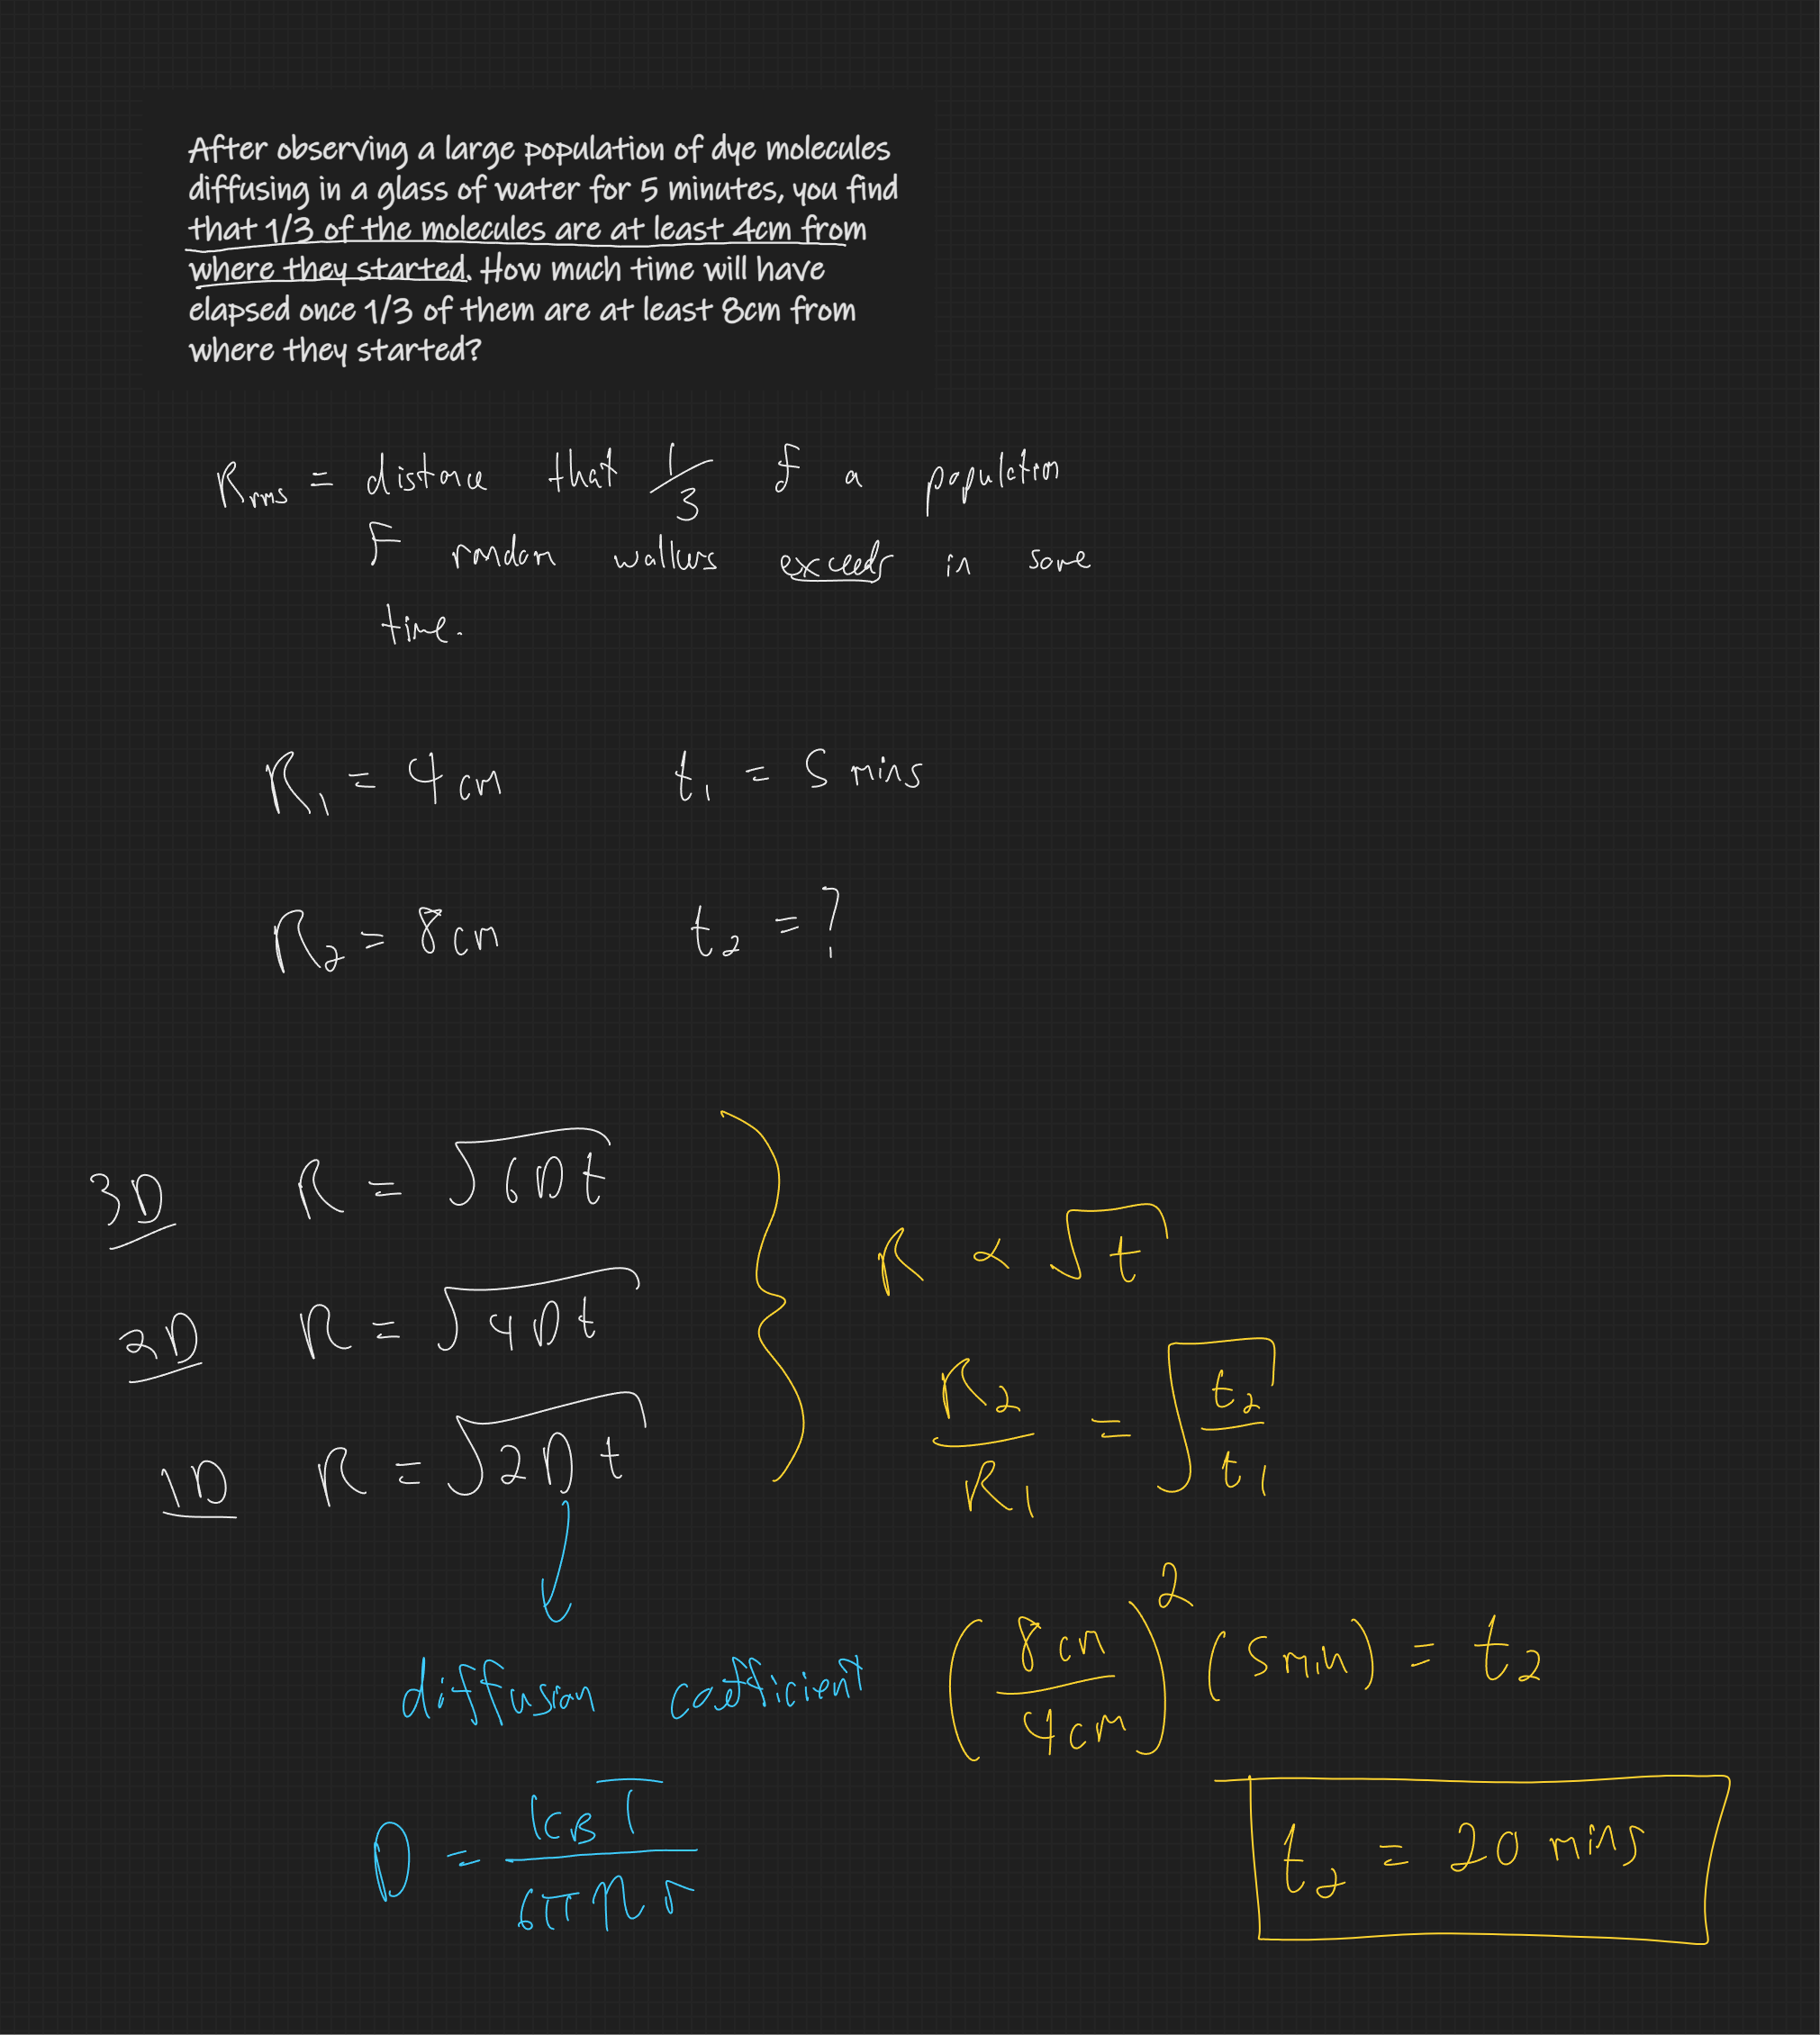 After observing a large population of dye molecules
diffusing in a glass of water for 5 minutes, you find
that 1/3 of the molecules are at least 4cm from
where they started. How much time will have
elapsed once 1/3 of them are at least 8cm from
where they started?
R_rms = distance that 1/3 of a population
of random walkers exceeds in some
time.
R₁ = 4 cm t₁ = 5 mins
R₂ = 8 cm t₂ = ?
3D R = √6Dt
2D R = √4Dt
1D R = √2Dt
R ∝ √t
R₂/R₁ = √(t₂/t₁)
diffusion coefficient
D = k_B T / 6πηr
(8 cm / 4 cm)² (5 min) = t₂
t₂ = 20 mins